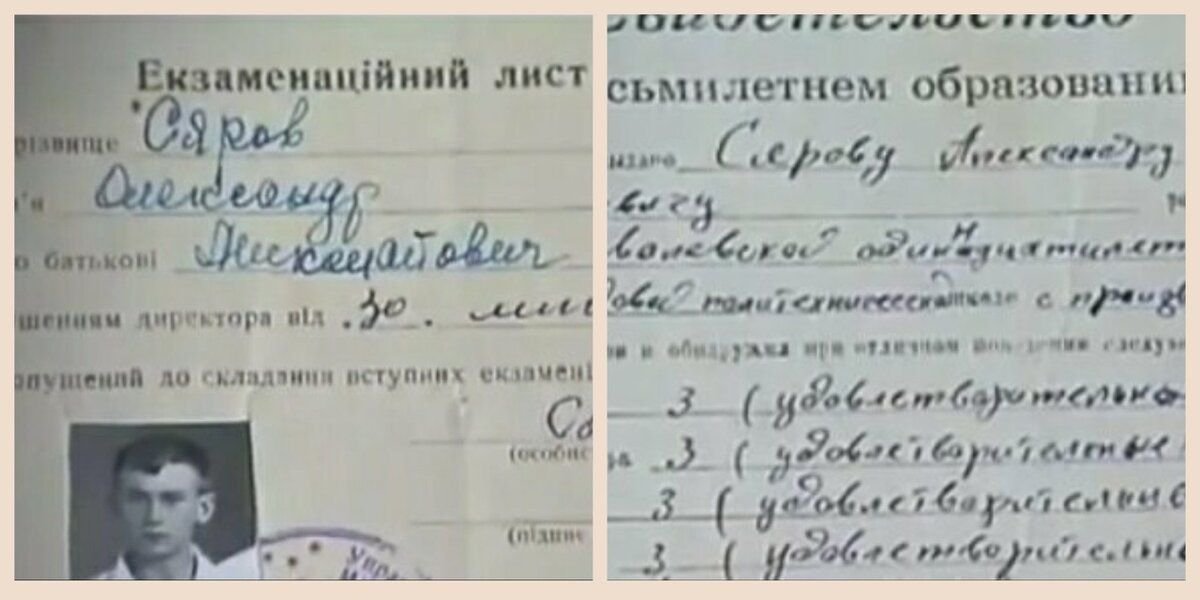 Екзаменаційний лист
різвище Сяров
м'я Олександр
о батькові Миколайович
шенням директора від 30.
опущений до складання вступних екзамені
(особис
(підпис
Упра
Свидетельство
сьмилетнем образовании
ыдано Серову Александру
вичу
валевской одиннадцатилет
довой политехнической школе с произв
и обнаружил при отличном поведении следую
3 (удовлетворительно
3 (удовлетворительные
3 (удовлетворительно
3 (удовлетворительно